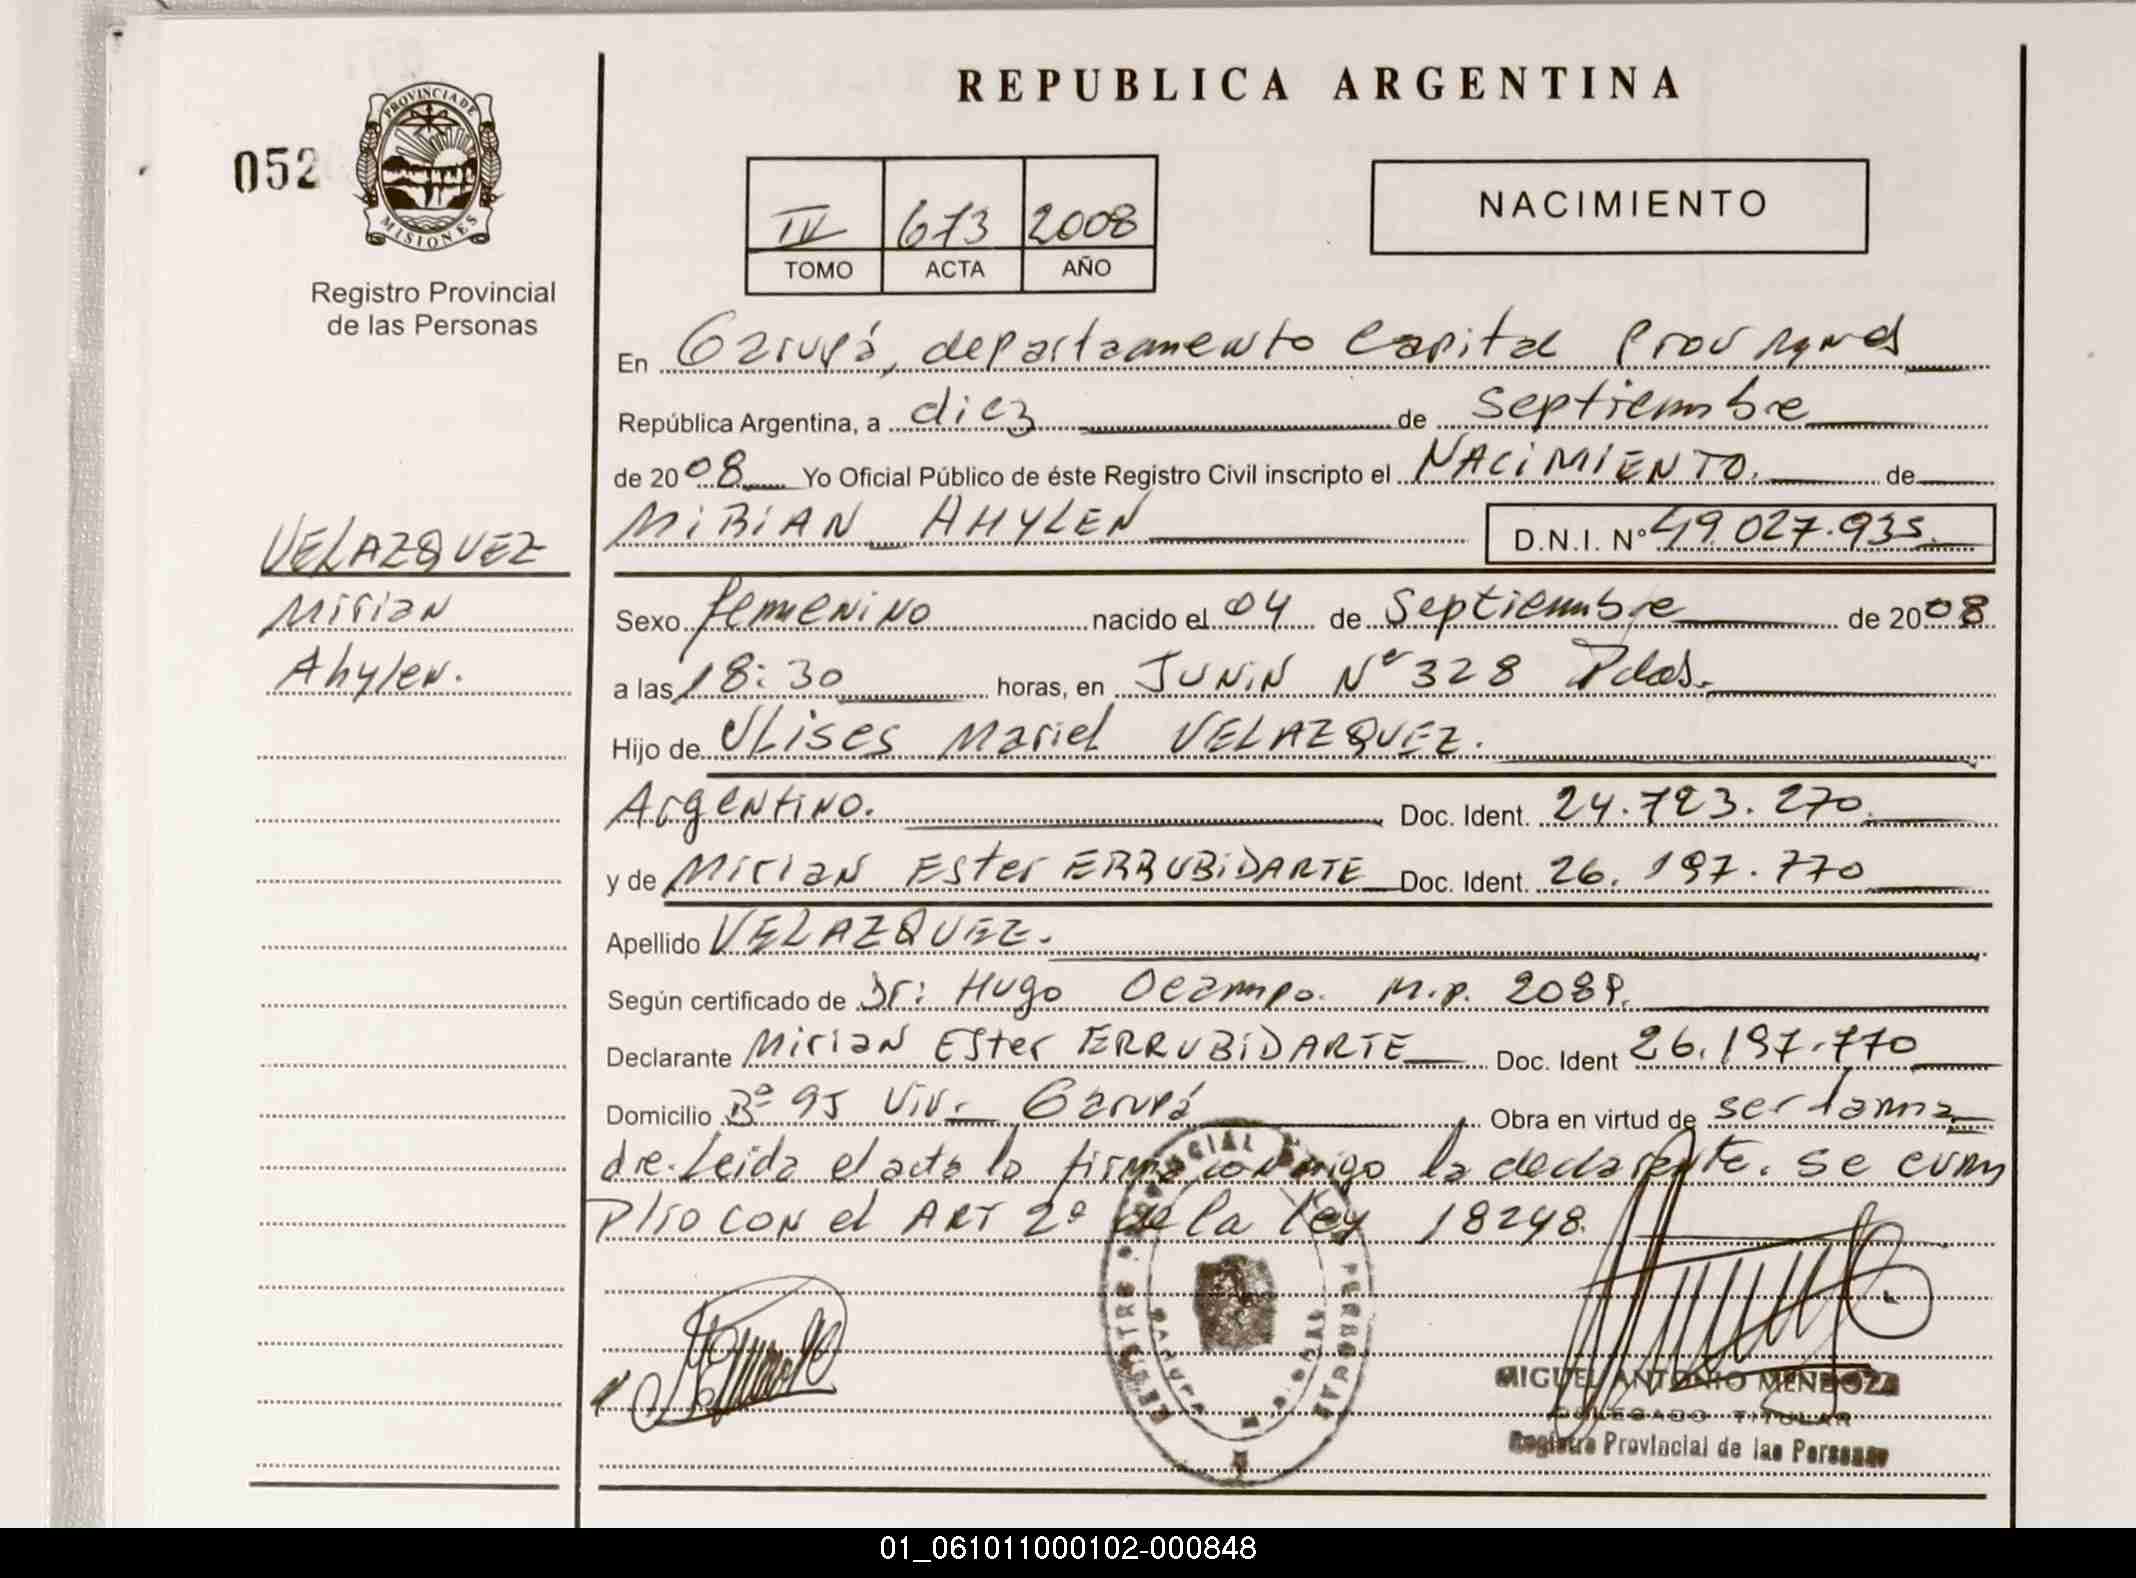 REPUBLICA ARGENTINA
052
PROVINCIA DE
MISIONES
Registro Provincial
de las Personas
IV 673 2008
TOMO ACTA AÑO
NACIMIENTO
En Garupá, departamento Capital Prov
República Argentina, a diez de septiembre
de 2008 Yo Oficial Público de éste Registro Civil inscripto el NACIMIENTO. de
MIRIAN AHYLEN D.N.I. N° 49.027.935.
VELAZQUEZ
Mirian
Ahylen.
Sexo femenino nacido el 04 de Septiembre de 2008
a las 18:30 horas, en JUNIN N° 328 Pdas.
Hijo de Ulises Mariel VELAZQUEZ.
Argentino. Doc. Ident. 24.723.270
y de Mirian Ester ERRUBIDARTE Doc. Ident. 26.197.770
Apellido VELAZQUEZ.
Según certificado de Dr: Hugo Ocampo. M.p.
Declarante Mirian Ester ERRUBIDARTE Doc. Ident 26.197.770
Domicilio Bº 95 Viv. Garupá Obra en virtud de ser la ma
dre. Leida el acta la firma conmigo la declarante. se cum
plio con el ART 2º de la Ley 18248.
MIGUEL ANTONIO MENDOZA
DELEGADO TITULAR
Registro Provincial de las Personas
01_061011000102-000848